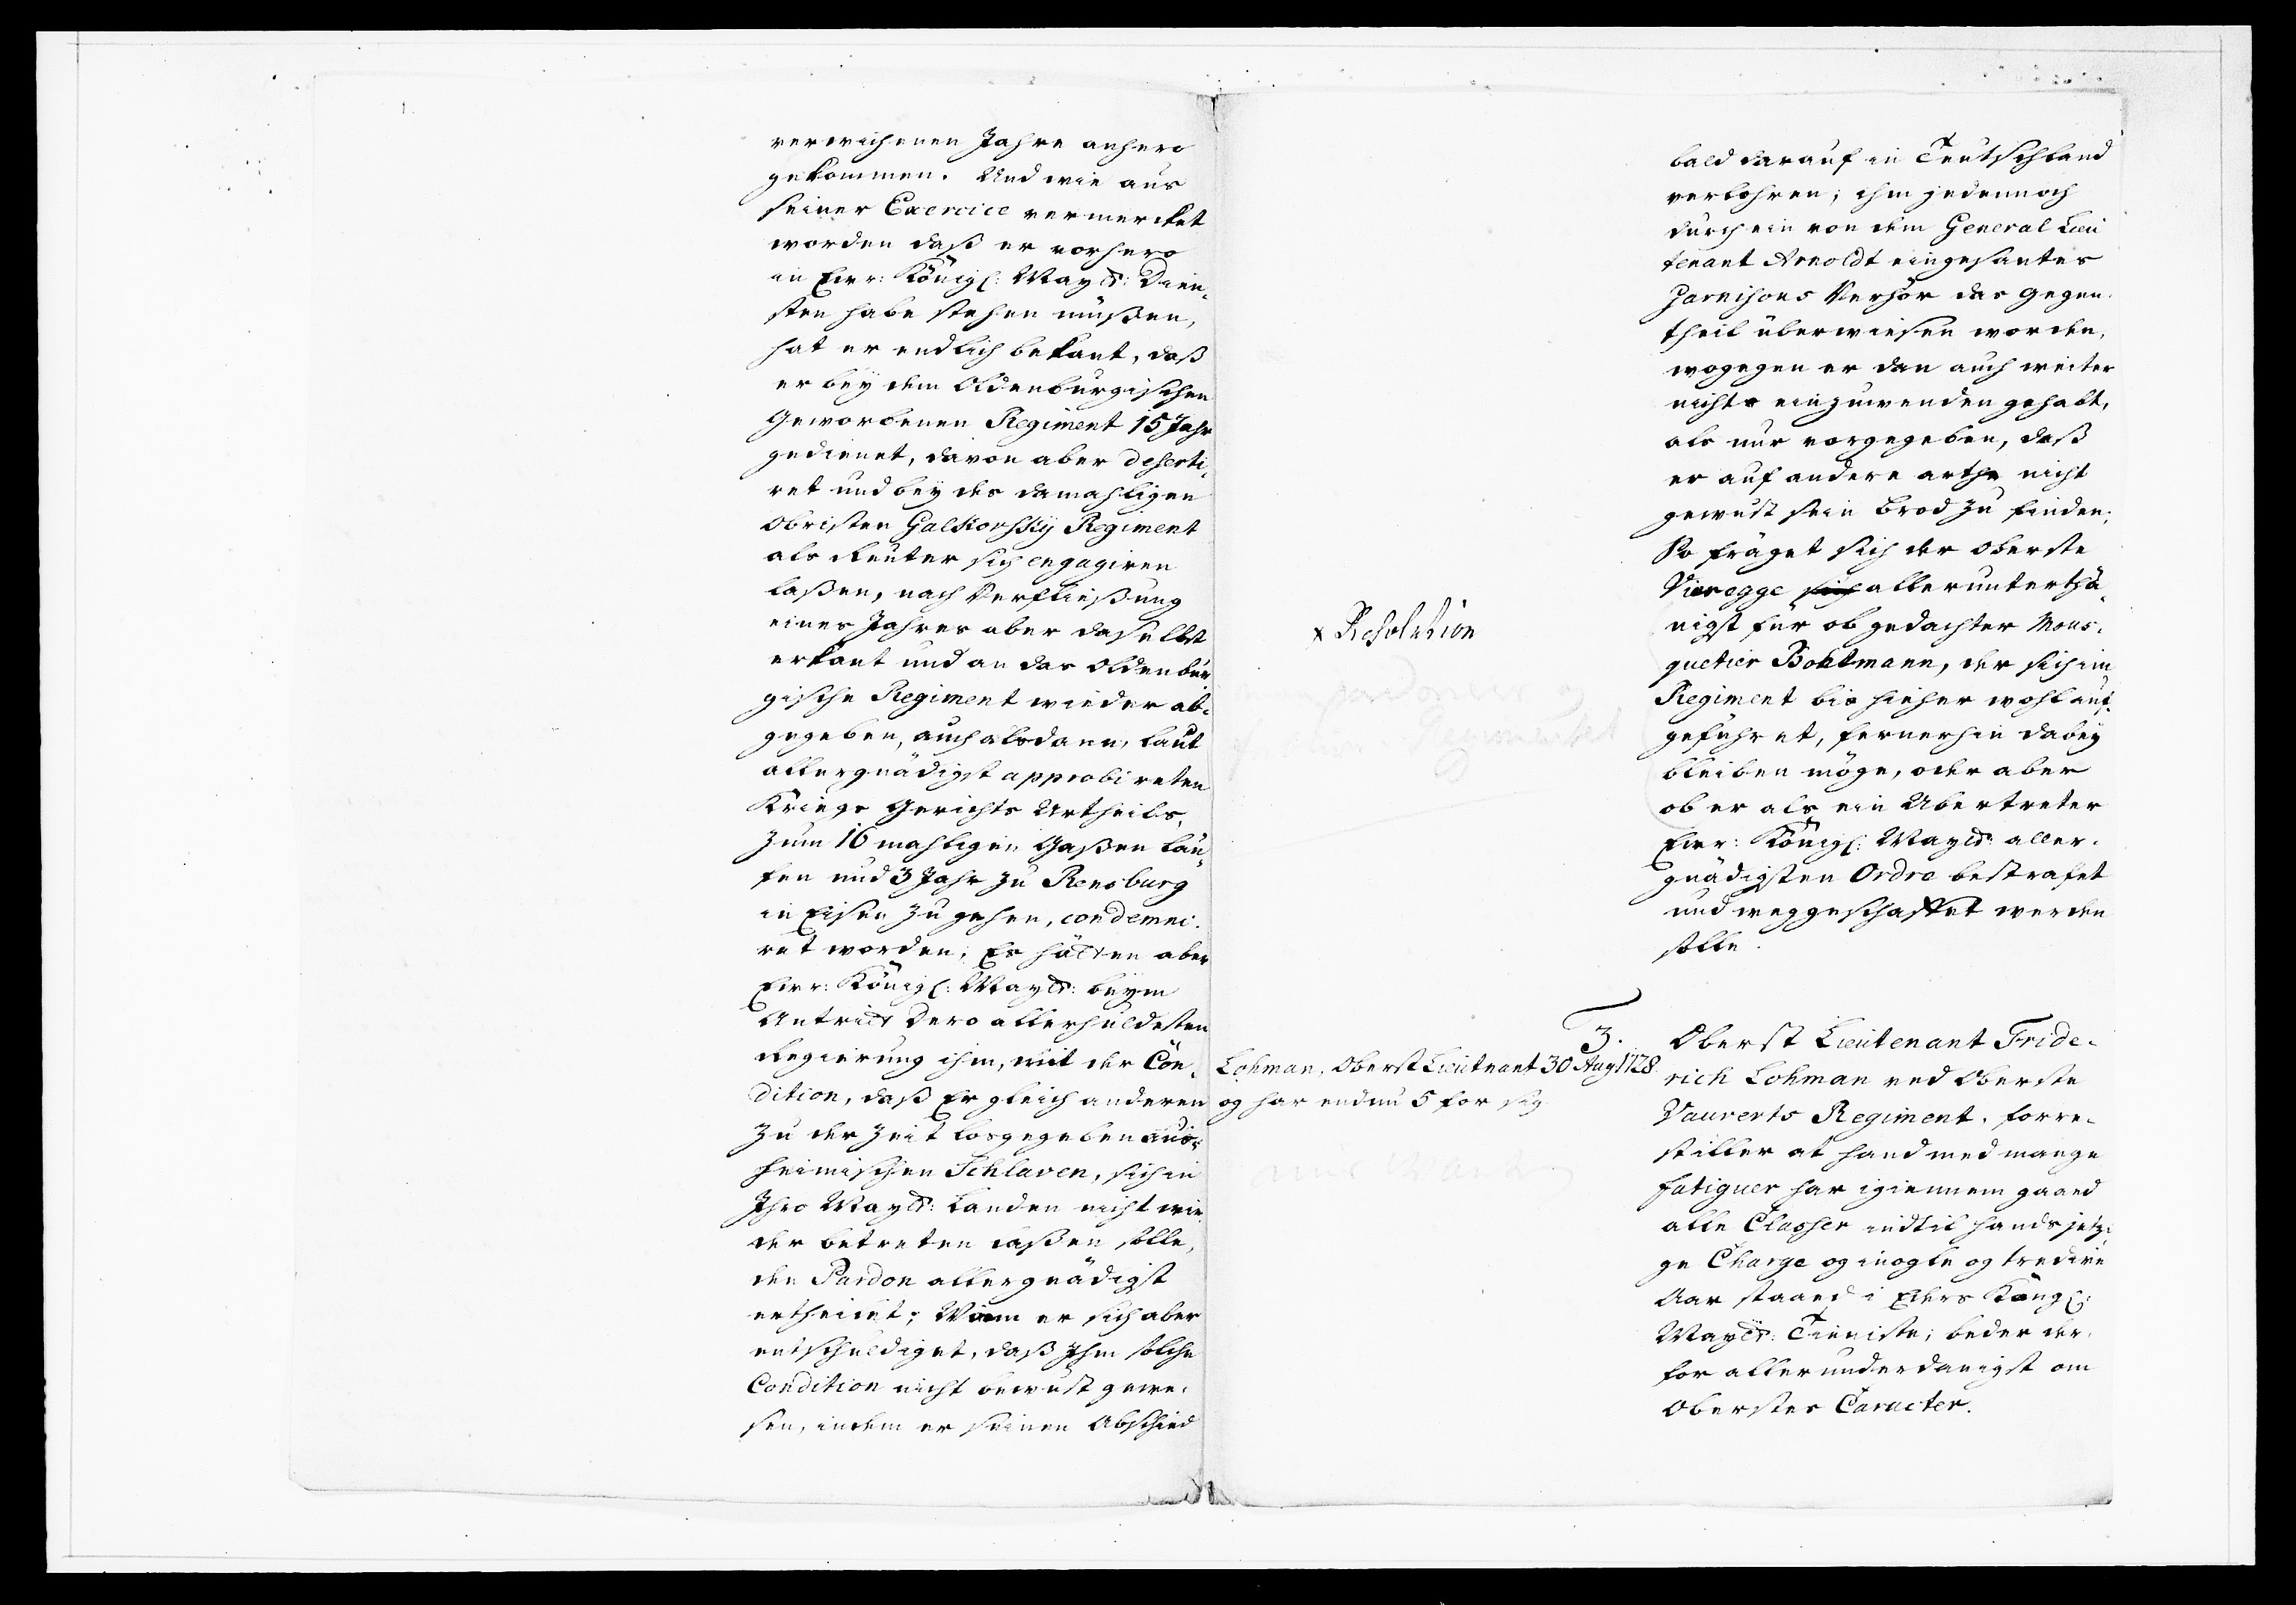 verwichenen Jahre anhero
gekommen. Und wie aus
seiner Exercice vermercket
worden daß er vorhero
in Ewr: Königl: Mayt: Dien-
sten habe stehen müßen,
hat er endlich bekant, daß
er beÿ dem Oldenburgischen
Geworbenen Regiment 15 Jahr
gedienet, davon aber deserti-
ret und beÿ des damahligen
Obristen Galkorsky Regiment
als Reuter sich engagiren
laßen, nach Verfließung
eines Jahres aber daselbst
erkant und an das Oldenbur-
gische Regiment wieder ab-
gegeben, auch alsdann, laut
allergnädigst approbireten
Kriegs Gerichts Urtheils,
zum 16 mahligen Gaßen lau-
fen und 3 Jahr zu Rensburg
in Eisen zu gehen, condemni-
ret worden; Es hätten aber
Ewr: Königl: Mayt: beym
Antritt Dero allerhuldesten
Regierung ihm, mit der Con-
dition, daß Er gleich anderen
zu der Zeit losgegeben aus-
heimischen Schlaven, sich in
Ihro Mayt: Landen nicht wie-
der betreten laßen solle,
den Pardon allergnädigst
ertheilet; Wann er sich aber
entschuldiget, daß Ihm solche
Condition nicht bewust gewe-
sen, indem er seinen Abschied
x Resolution
3.
Lohman, Oberst Lieutnant 30 Aug 1728
og har endnu 5 for sig
bald darauf in Teutschland
verlohren; ihm jedennoch
durch ein von dem General Lieu
tenant Arnoldt eingesantes
Garnisons Verhör das Gegen-
theil überwiesen worden,
wogegen er dan auch weiter
nichts einzuwenden gehabt,
als nur vorgegeben, daß
er auf andere arthe nicht
gewust sein Brod zu finden;
So fräget sich der Oberste
Vieregge sich allerunterthä-
nigst für ob gedachter Mous-
quetier Bohtmann, der sich im
Regiment bis hieher wohl auf-
geführet, fernerhin dabeÿ
bleiben möge, oder aber
ob er als ein Ubertreter
Ewr: Königl: Mayt: aller-
gnädigsten Ordre bestrafet
und weggeschaffet werden
solle.
Oberst Lieutenant Fride-
rich Lohman ved Oberste
Vaurerts Regiment, forre-
stiller at hand med mange
fatiguer har igiennem gaaed
alle Classer indtil hands jetzi-
ge Charge og inogle og tredive
Aar staaed i Eders Kongl:
Mayts: Tieniste; beder der-
for allerunderdanigst om
Oberstes Caracter.